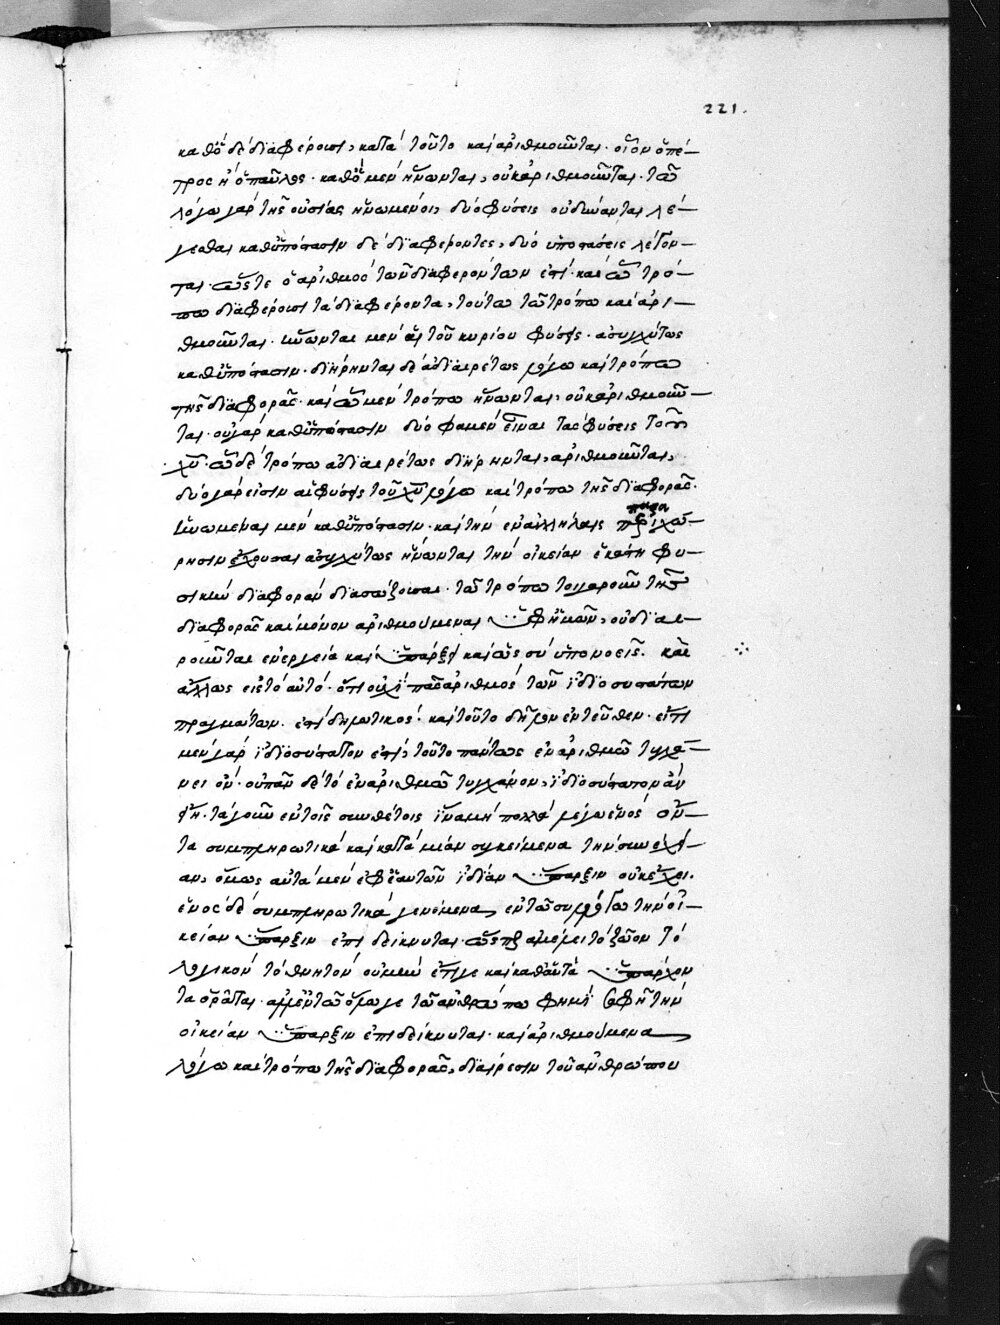 221.
καθὸ δὲ διαφέρουσι, κατὰ τοῦτο καὶ ἀριθμοῦνται· οἷον ὁ πέ-
τρος ἢ ὁ παῦλος· καθὸ μὲν ἥνωνται, οὐκ ἀριθμοῦνται· τῶ
λόγω γὰρ τῆς οὐσίας ἡνωμένοι, δύο φύσεις οὐ δύνανται λέ-
γεσθαι καθ' ὑπόστασιν δὲ διαφέροντες, δύο ὑποστάσεις λέγον-
ται· ὥστε ὁ ἀριθμὸς τῶν διαφερόντων ἐστί· καὶ ὧ τρό-
πω διαφέρουσι τὰ διαφέροντα, τούτω τῶ τρόπω καὶ ἀρι-
θμοῦνται· ἥνωνται μὲν αἱ τοῦ κυρίου φύσεις· ἀσυγχύτως
καθ' ὑπόστασιν· διήρηνται δὲ ἀδιαιρέτως λόγω καὶ τρόπω
τῆς διαφορᾶς· καὶ ὧ μὲν τρόπω ἥνωνται, οὐκ ἀριθμοῦν-
ται· οὐ γὰρ καθ' ὑπόστασιν δύο φαμὲν εἶναι τὰς φύσεις τοῦ
χῦ· ὧ δὲ τρόπω ἀδιαιρέτως διήρηνται, ἀριθμοῦνται,
δύο γάρ εἰσιν αἱ φύσεις τοῦ χῦ λόγω καὶ τρόπω τῆς διαφορᾶς·
ἡνωμέναι μὲν καθ' ὑπόστασιν· καὶ τὴν ἐν ἀλλήλαις περιχώ-
ρησιν ἔχουσαι ἀσυγχύτως ἥνωνται τὴν οἰκείαν ἑκάστη φυ-
σικὴν διαφορὰν διασώζουσαι· τῶ τρόπω τοιγαροῦν τῆς
διαφορᾶς καὶ μόνον ἀριθμούμεναι ὑφ' ἡμῶν, οὐ διαι-
ροῦνται ἐνεργεία καὶ ὑπάρξει καὶ ὡς σὺ ὑπονοεῖς. καὶ
ἄλλως εἰς τὸ αὐτό· ὅτι οὐχὶ πᾶς ἀριθμὸς τῶν ἰδιοσυστάτων
πραγμάτων ἐστὶ δηλωτικός· καὶ τοῦτο δῆλον ἐντεῦθεν· εἴ τι
μὲν γὰρ ἰδιοσύστατον ἐστί, τοῦτο πάντως ἐν ἀριθμῶ τυγχά-
νει ὄν· οὐ πᾶν δὲ τὸ ἐν ἀριθμῶ τυγχάνον, ἰδιοσύστατον ἂν
εἴη· τὰ γοῦν ἐν τοῖς συνθέτοις ἵνα μὴ πολλὰ λέγω ἑνὸς ὄν-
τα συμπληρωτικὰ καὶ κατὰ μίαν συγκείμενα τὴν συνέχει-
αν, ὅμως αὐτὰ μὲν ἐφ' ἑαυτῶν ἰδίαν ὕπαρξιν οὐκ ἔχει.
ἑνὸς δὲ συμπληρωτικὰ γενόμενα, ἐν τῶ συλλόγω τὴν οἰ-
κείαν ὕπαρξιν ἐπιδείκνυται· ὥσπερ ἀμέλει τὸ ζῶον τὸ
λογικὸν τὸ θνητὸν οὐ μὴν ἔτι γε καὶ καθ' αὑτὰ ὑπάρχον
οἰκείαν ὕπαρξιν ἐπιδείκνυται· καὶ ἀριθμούμενα
λόγω καὶ τρόπω τῆς διαφορᾶς, διαίρεσιν τοῦ ἀνθρώπου